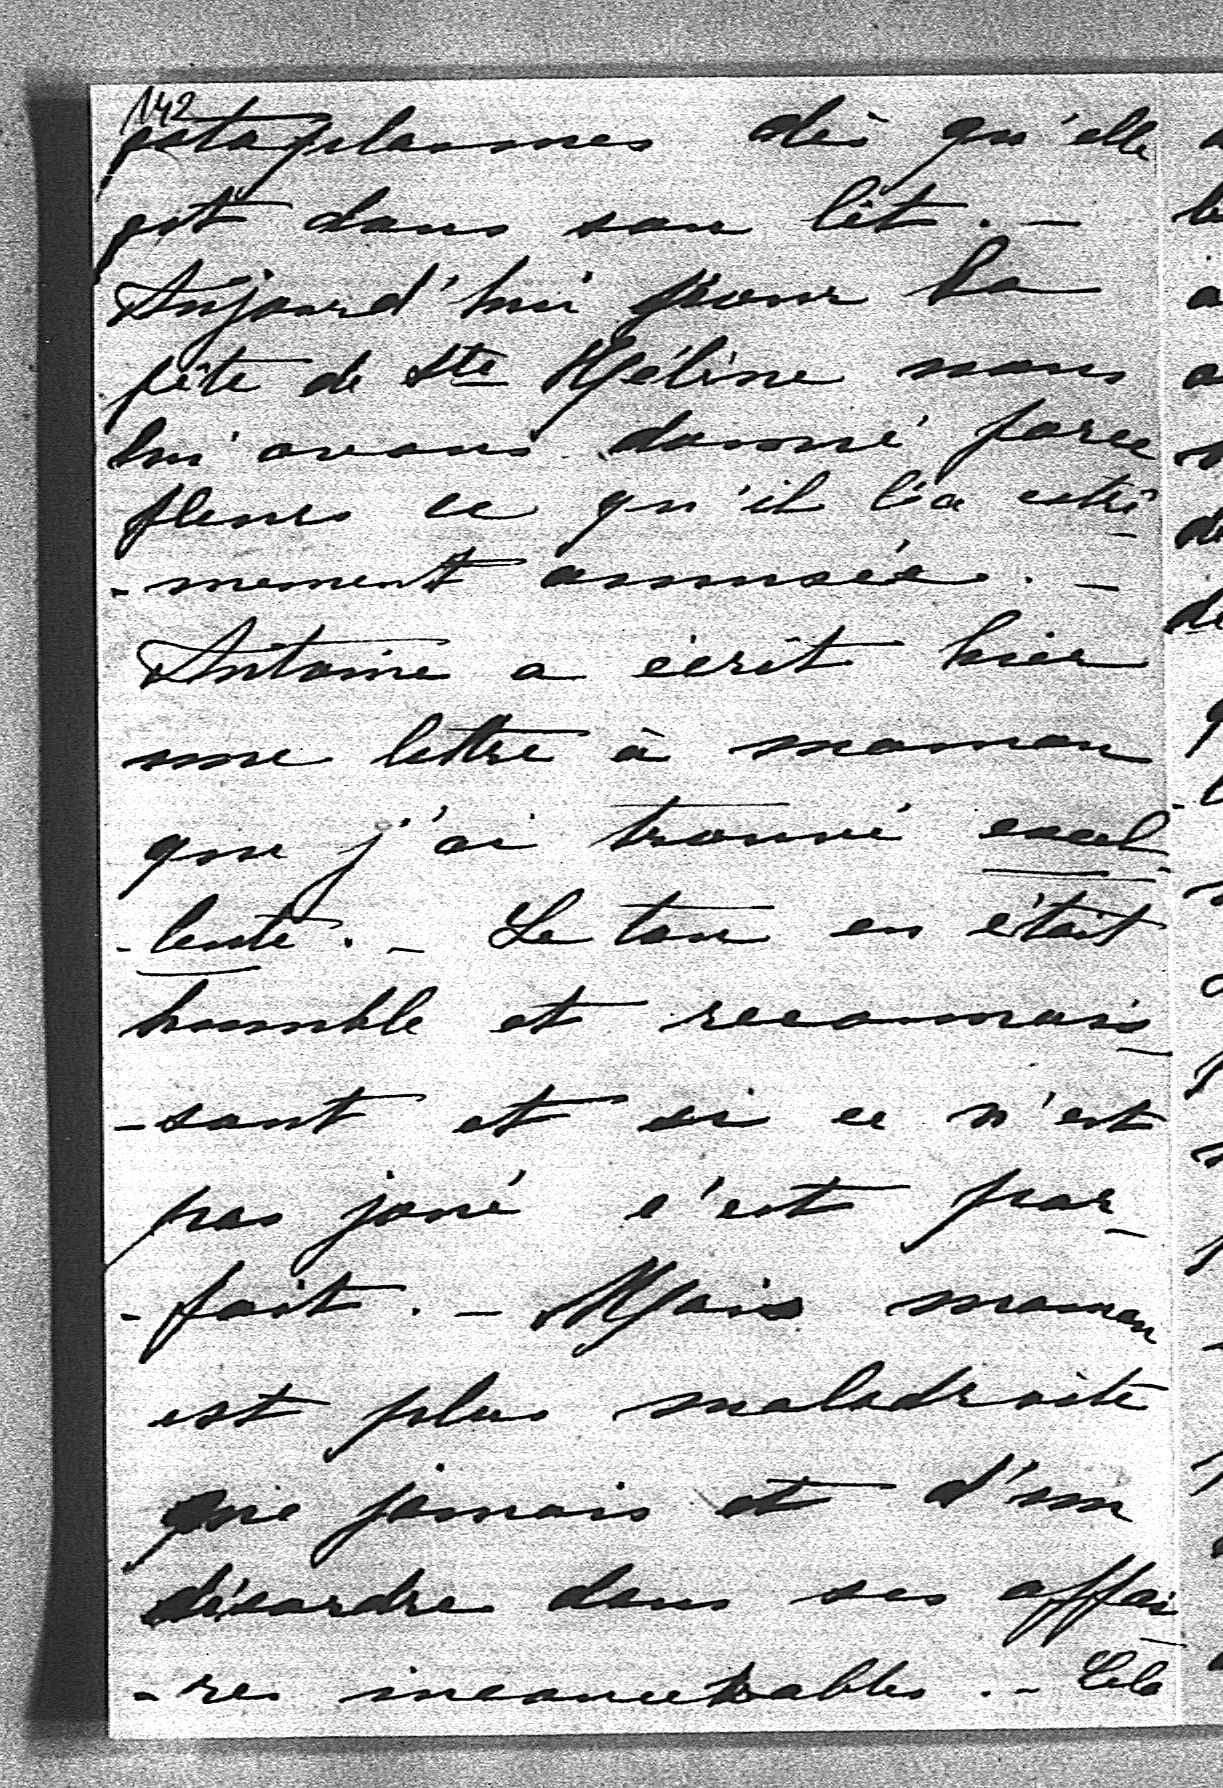 142
cataplasmes dès qu'elle
est dans son lit. -
Aujourd'hui pour la
fête de Ste Hélène nous
lui avons donné force
fleurs ce qu'il l'a extrê-
-mement amusée. -
Antoine a écrit hier
une lettre à maman
que j'ai trouvé excel-
-lente. - Le ton en était
humble et reconnais-
-sant et si ce n'est
pas joué c'est par-
-fait. - Mais maman
est plus maladroite
que jamais et d'un
désordre dans ses affai-
-res inconcevables. - Cela